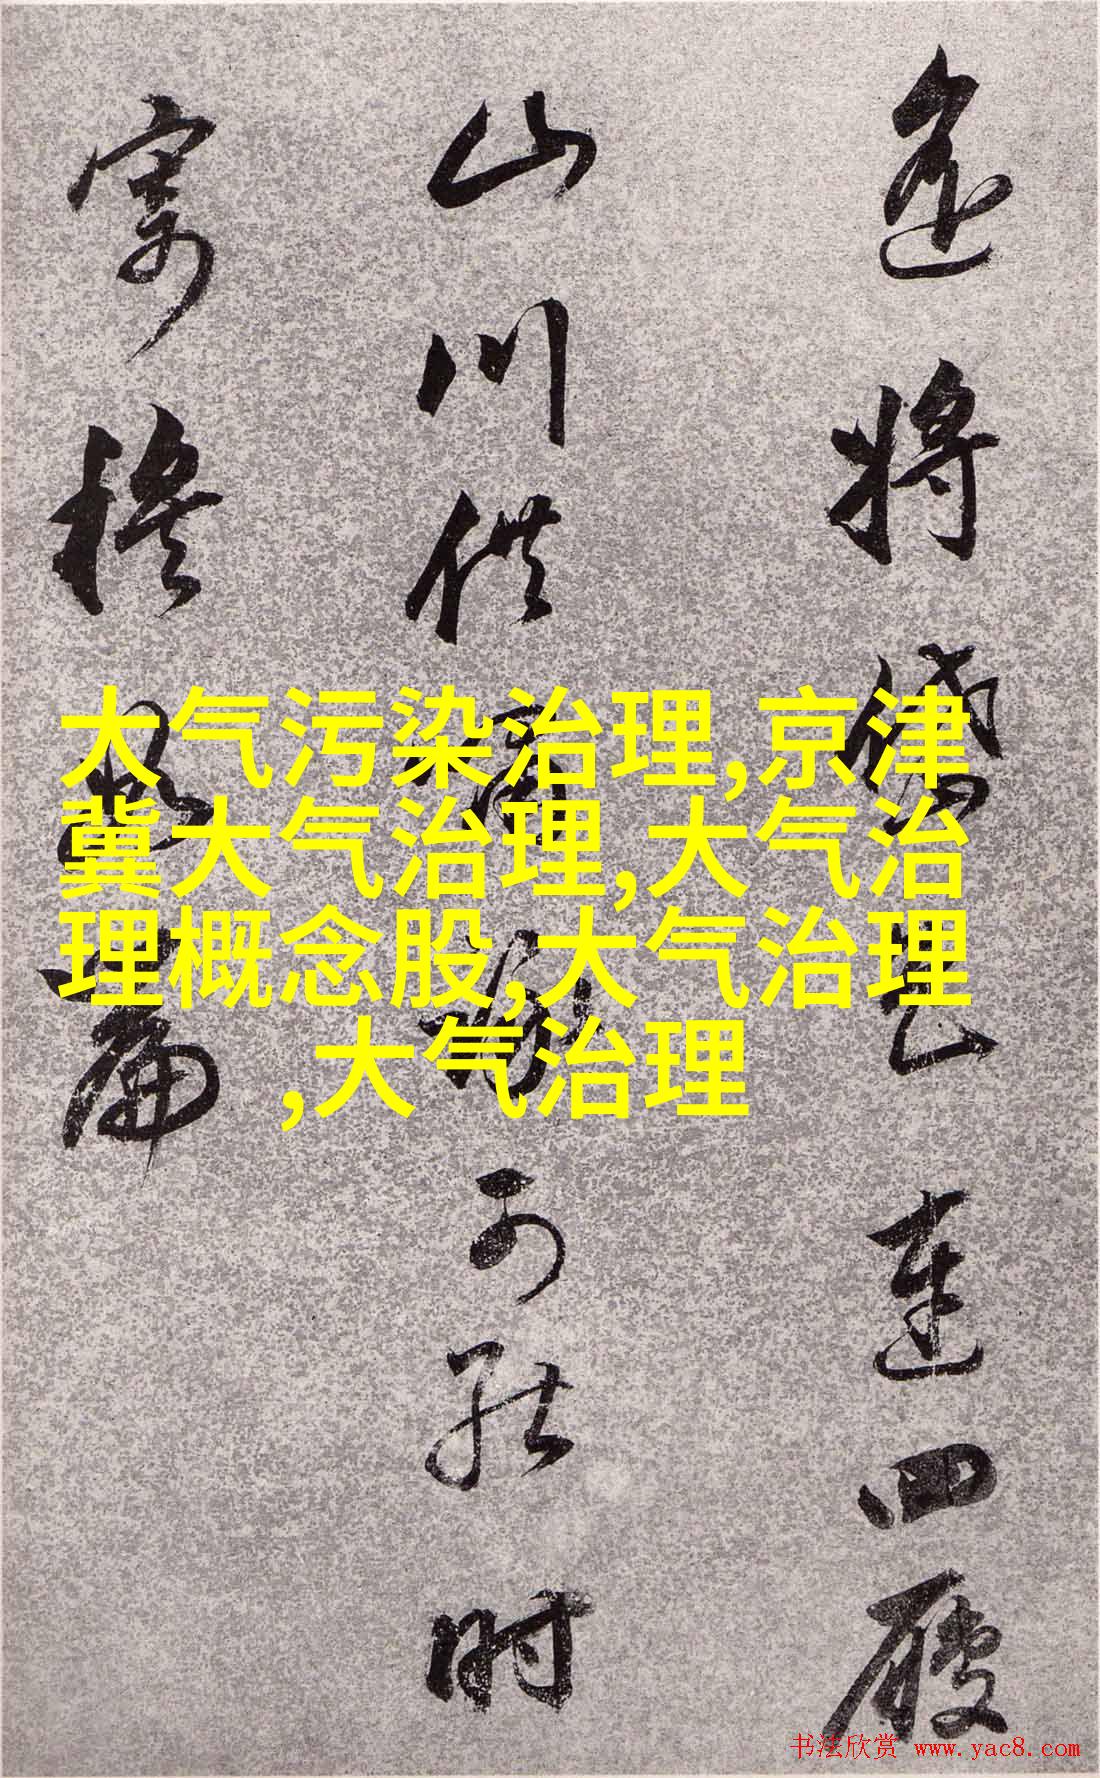 遥将岱色连四履
山川供啸歌可能时
寄秾篇
大气污染治理,京津
冀大气治理,大气治
理概念股,大气治理
,大气治理
书法欣赏 www.yac8.com